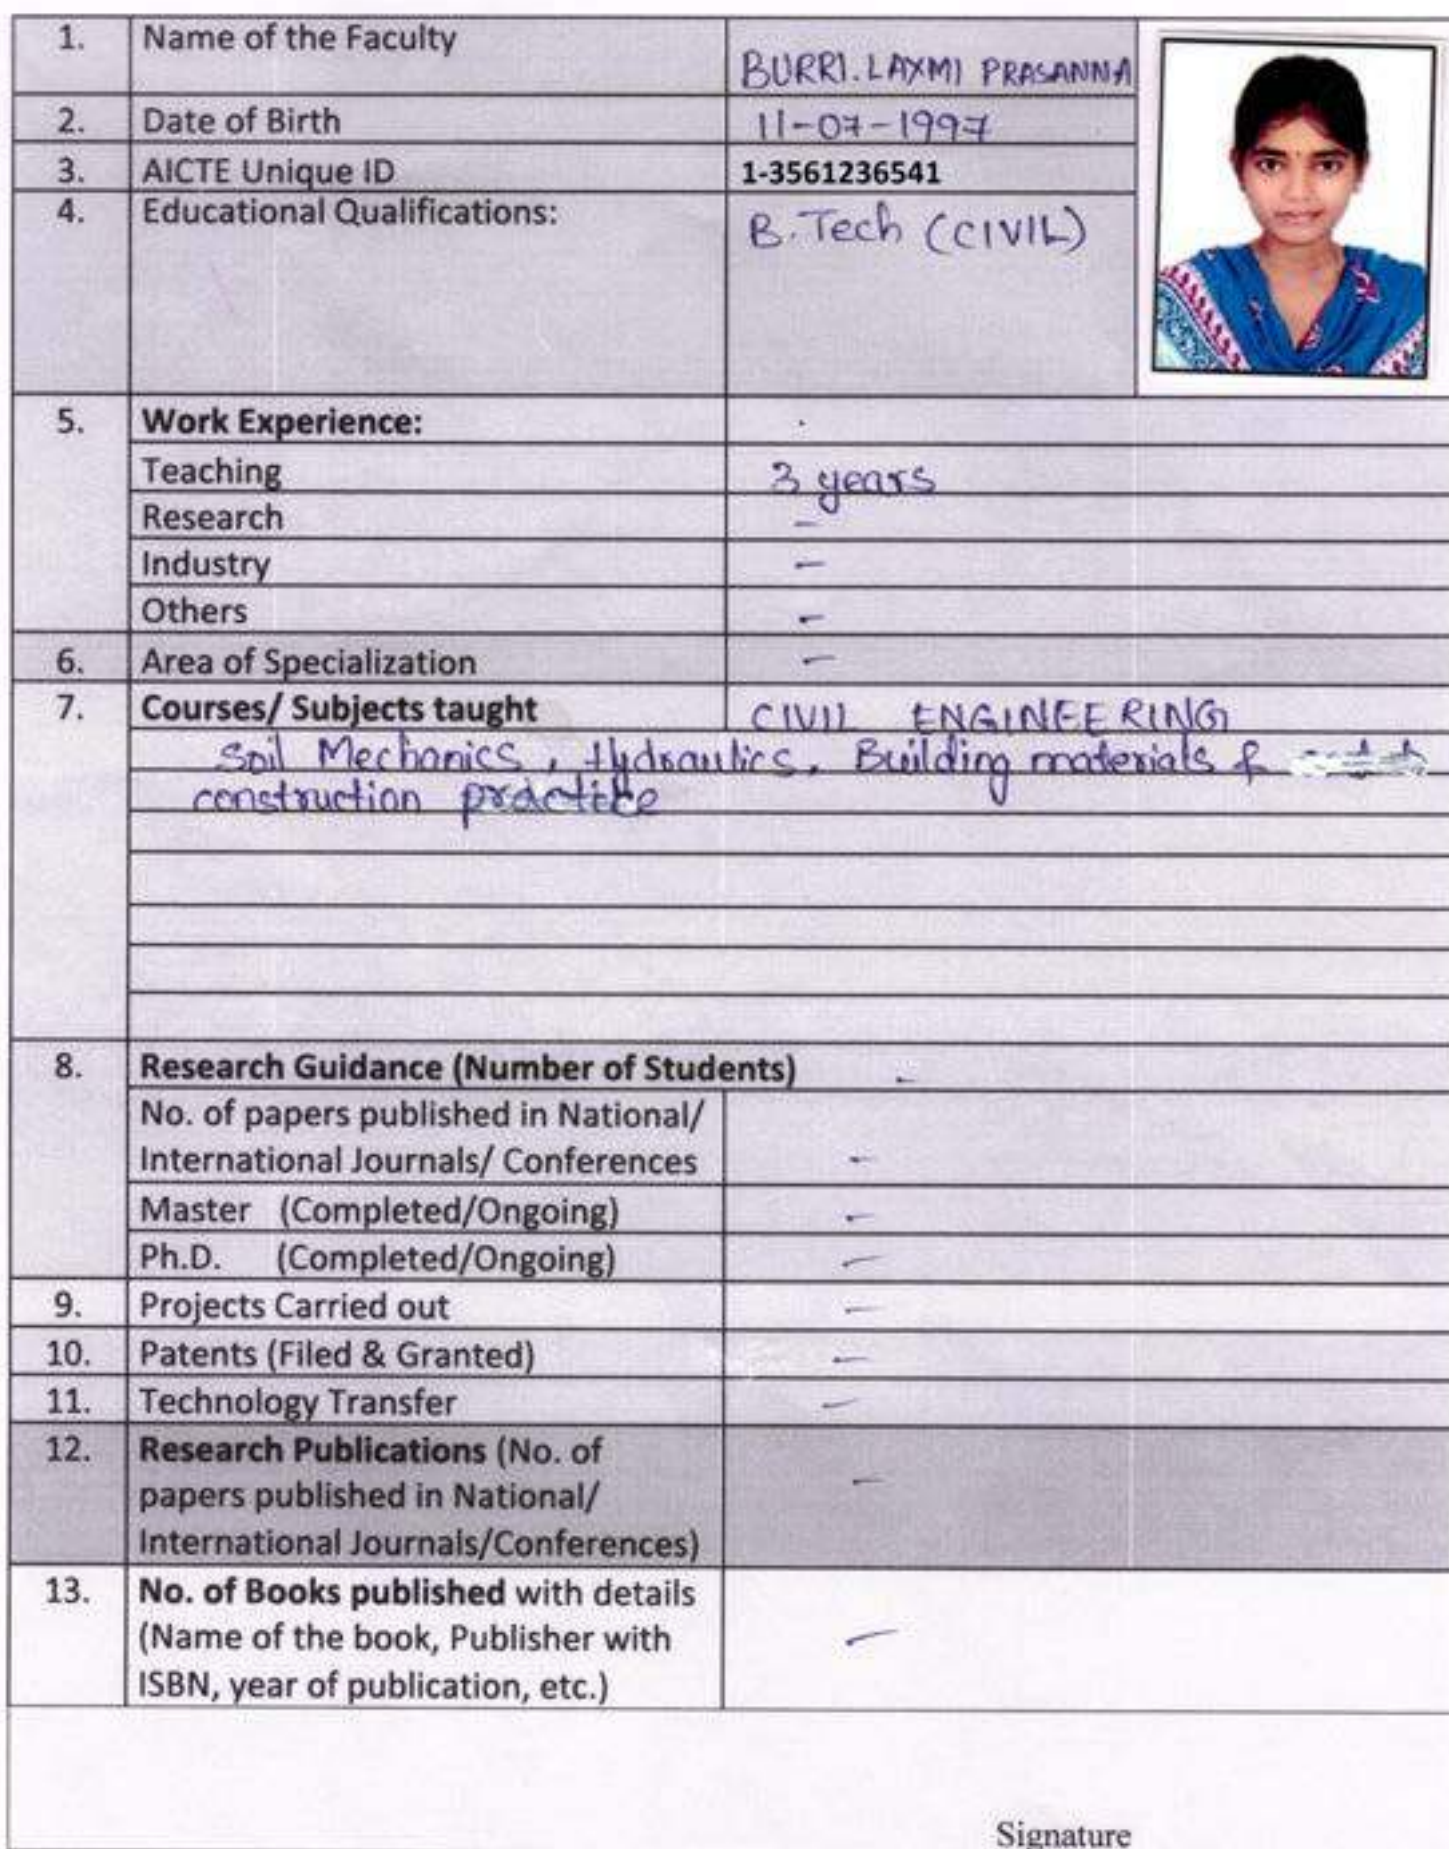 1. Name of the Faculty BURRI. LAXMI PRASANNA
2. Date of Birth 11-07-1997
3. AICTE Unique ID 1-3561236541
4. Educational Qualifications: B.Tech (CIVIL)
5. Work Experience:
Teaching 3 years
Research -
Industry -
Others -
6. Area of Specialization -
7. Courses/ Subjects taught CIVIL ENGINEERING
Soil Mechanics, Hydraulics, Building materials &
construction practice
8. Research Guidance (Number of Students) -
No. of papers published in National/
International Journals/ Conferences -
Master (Completed/Ongoing) -
Ph.D. (Completed/Ongoing) -
9. Projects Carried out -
10. Patents (Filed & Granted) -
11. Technology Transfer -
12. Research Publications (No. of
papers published in National/ -
International Journals/Conferences)
13. No. of Books published with details
(Name of the book, Publisher with -
ISBN, year of publication, etc.)
Signature